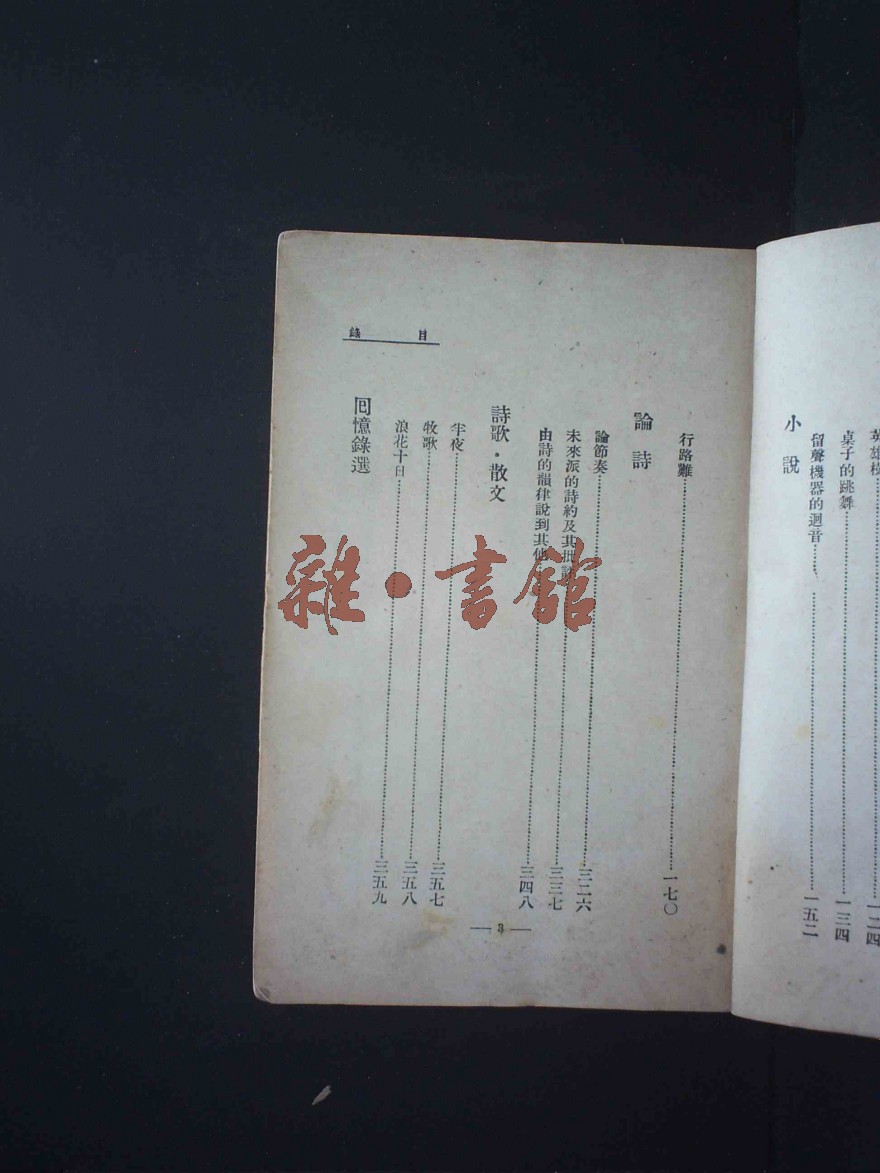 英雄樹
一二四
桌子的跳舞
一三四
留聲機器的迴音
一五二
小說
行路難
一七〇
論詩
論節奏
三二六
未來派的詩約及其批評
三三七
由詩的韻律說到其他
三四八
詩歌・散文
半夜
三五七
牧歌
三五八
浪花十日
三五九
回憶錄選
目錄
— 3 —
雜・書館